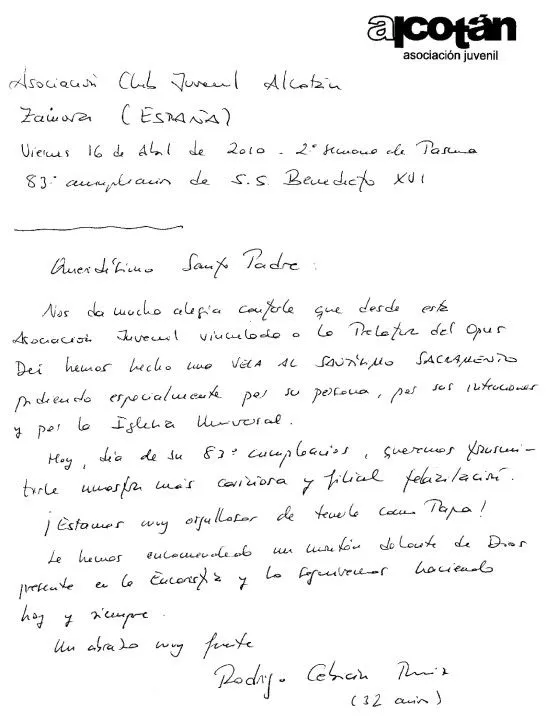 alcotán
asociación juvenil
Asociación Club Juvenil Alcotán
Zamora (ESPAÑA)
Viernes 16 de Abril de 2010 - 2ª semana de Pascua
83º cumpleaños de S.S. Benedicto XVI
Queridísimo Santo Padre:
Nos da mucha alegría contarle que desde esta
Asociación Juvenil vinculada a la Prelatura del Opus
Dei hemos hecho una VELA AL SANTÍSIMO SACRAMENTO
pidiendo especialmente por su persona, por sus intenciones
y por la Iglesia Universal.
Hoy, día de su 83º cumpleaños, queremos transmi-
tirle nuestra más cariñosa y filial felicitación.
¡Estamos muy orgullosos de tenerle como Papa!
Le hemos encomendado un montón delante de Dios
presente en la Eucaristía y lo seguiremos haciendo
hoy y siempre.
Un abrazo muy fuerte
Rodrigo Cebrián Ruiz
(32 años)